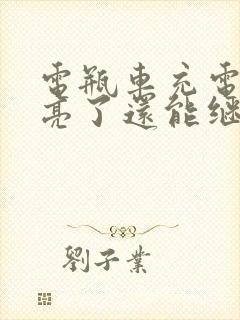 電瓶車充電
亮了還能繼
劉子業